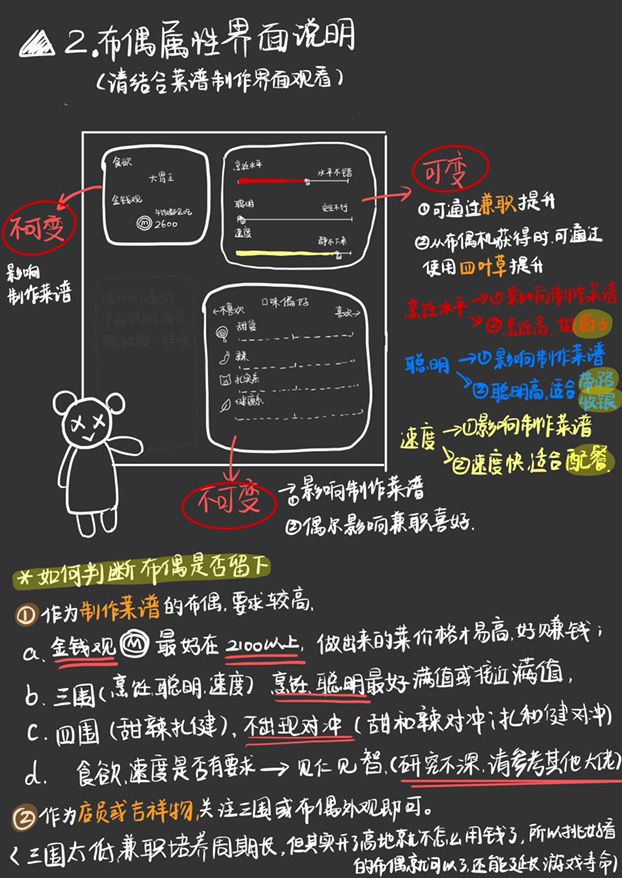 2.布偶属性界面说明
(请结合菜谱制作界面观看)
食欲
大胃王
金钱观
2600
不可变
影响
制作菜谱
烹饪水平
水平不错
聪明
速度
静不下来
可变
①可通过兼职提升
②从布偶机获得时,可通过
使用四叶草提升
烹饪水平→①影响制作菜谱
②烹饪高、做厨子
聪明→①影响制作菜谱
②聪明高,适合带路
收银
速度→①影响制作菜谱
②速度快,适合配餐.
口味偏好
←不喜欢
喜欢→
甜蜜
辣
扎实系
健康系
不可变
→①影响制作菜谱
②偶尔影响兼职喜好.
*如何判断布偶是否留下
①作为制作菜谱的布偶,要求较高,
a、金钱观Ⓜ最好在2100以上,做出来的菜价格才易高,好赚钱;
b. 三围(烹饪、聪明、速度)烹饪、聪明最好满值或接近满值,
c. 四围(甜辣扎健),不出现对冲(甜和辣对冲;扎和健对冲)
d. 食欲,速度是否有要求→见仁见智,(研究不深,请参考其他大佬)
②作为店员或吉祥物,关注三围或布偶外观即可。
(三围太低,兼职培养周期长,但其实开了高地就不怎么用钱了,所以挑好看
的布偶就可以了,还能延长游戏寿命)